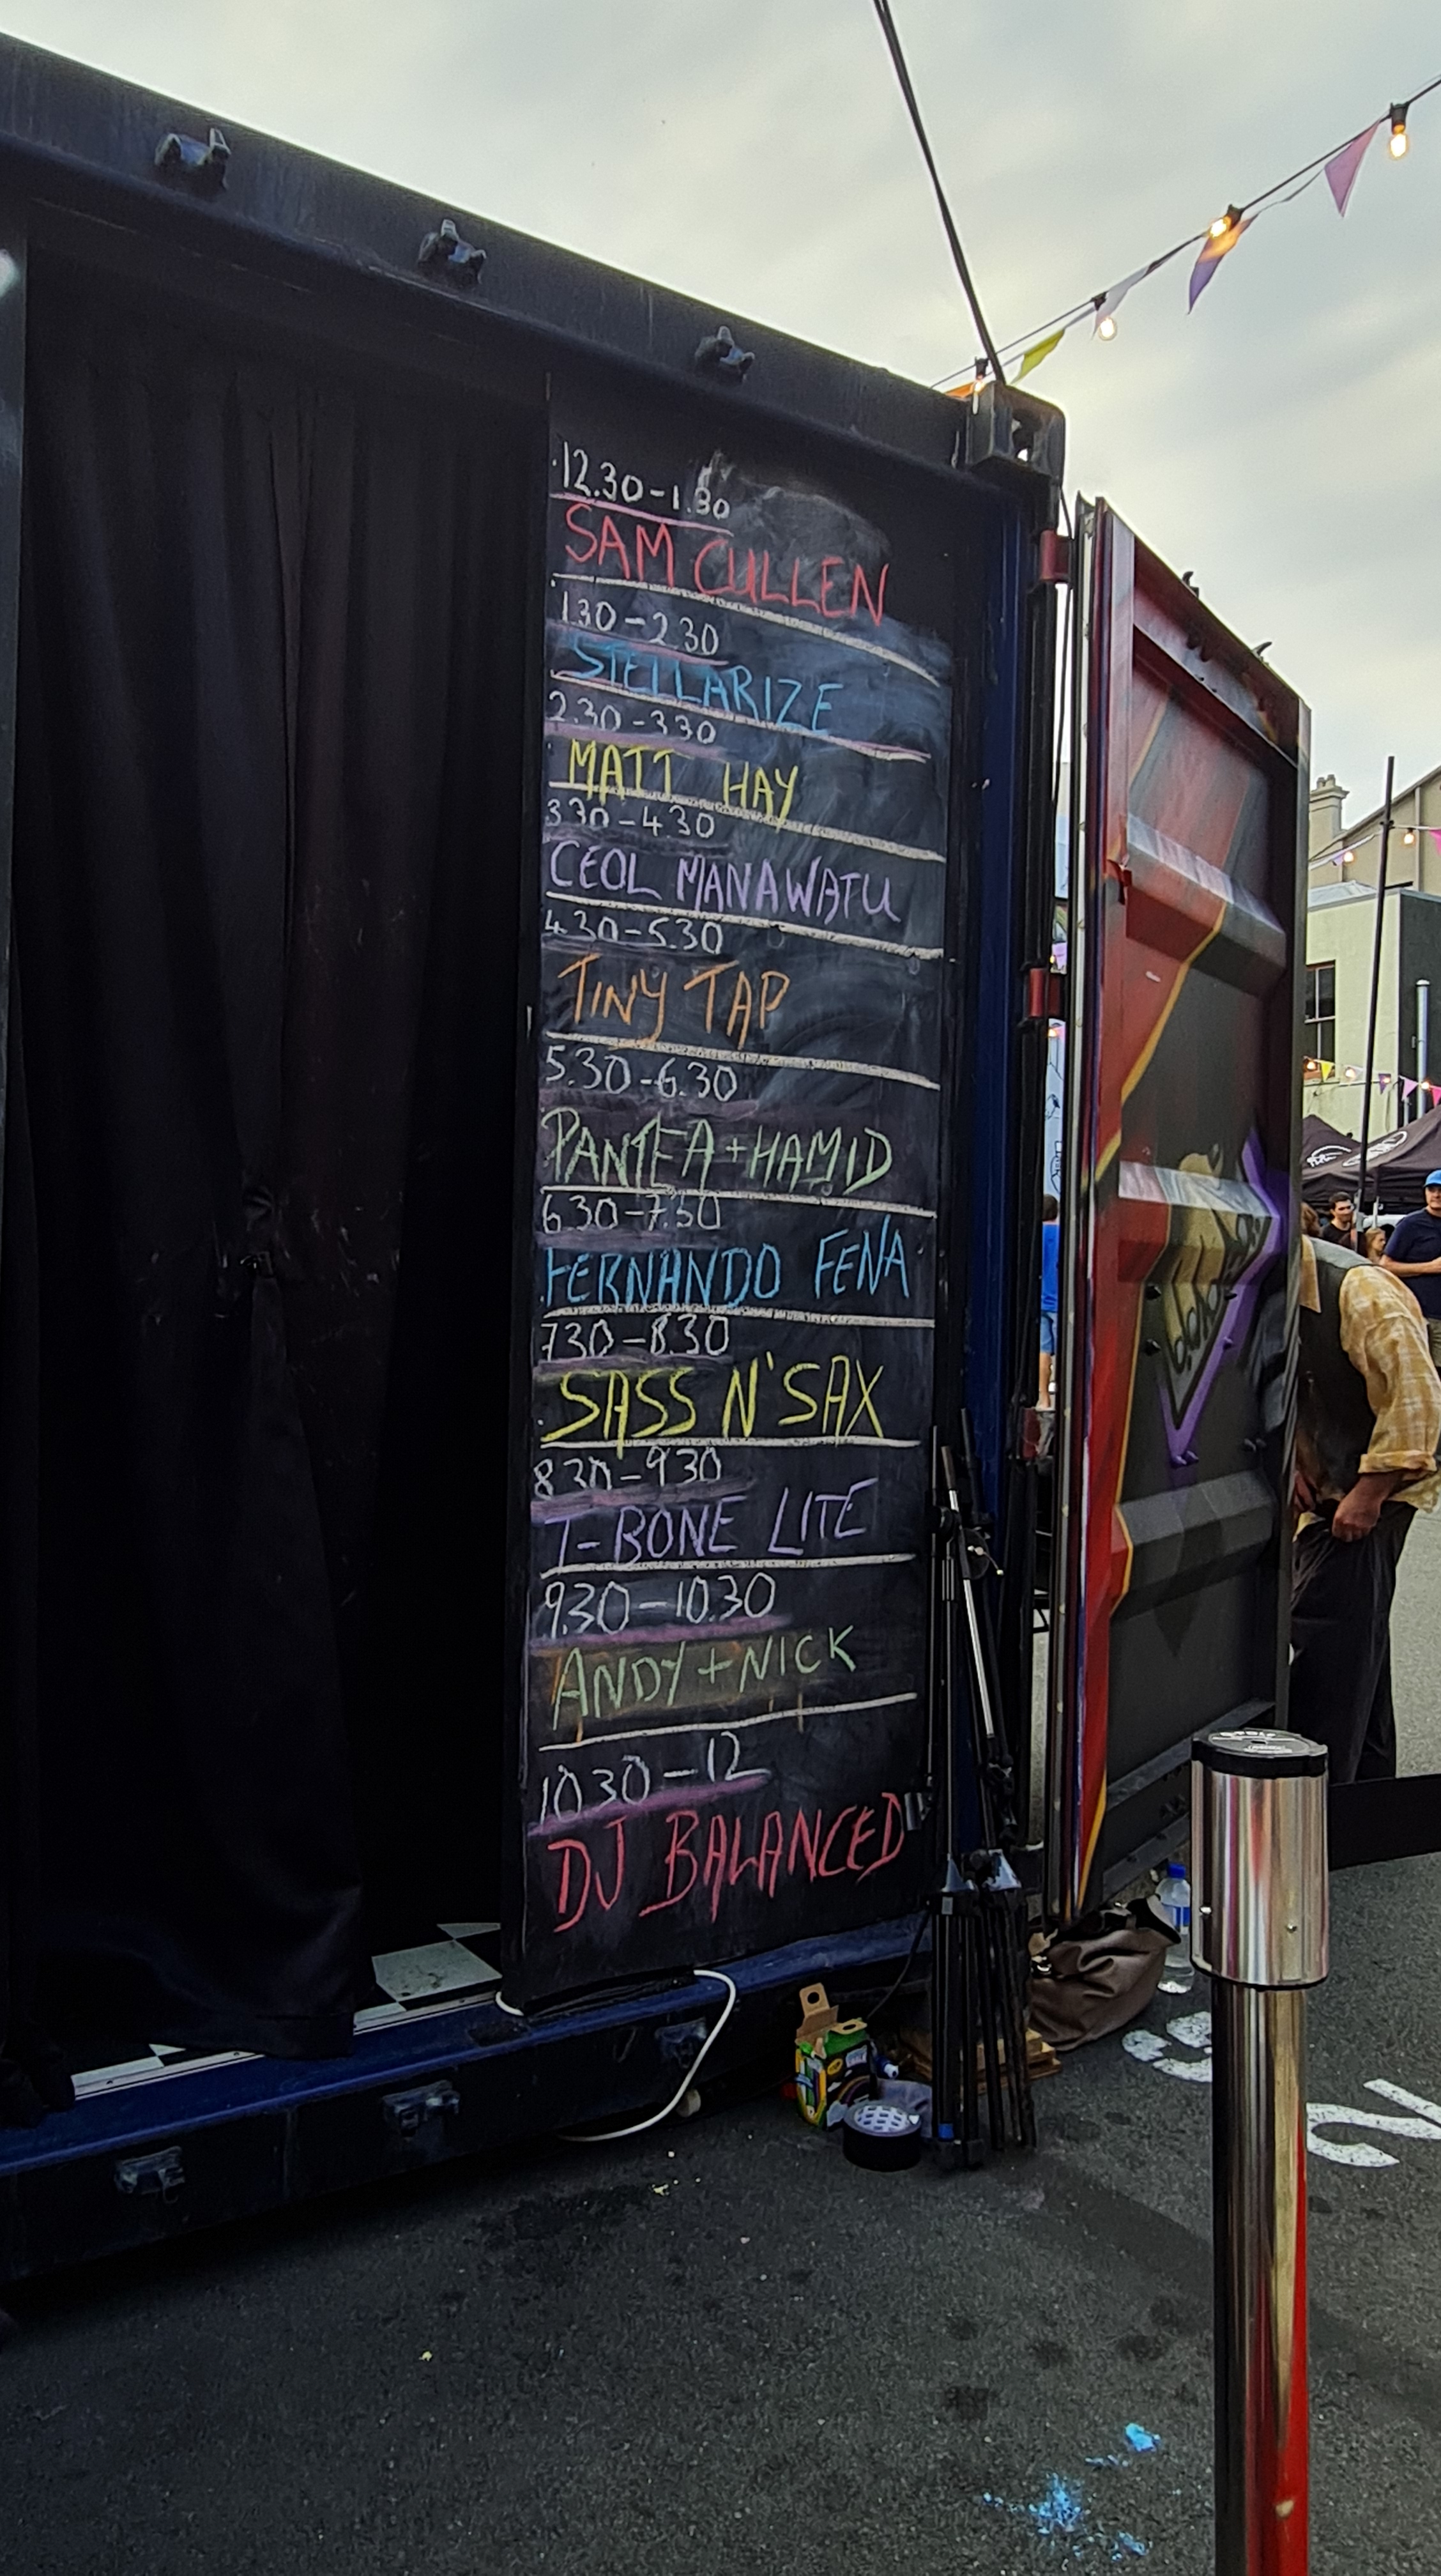 12.30-1.30
SAM CULLEN
1.30-2.30
STELLARIZE
2.30-3.30
MATT HAY
3.30-4.30
CEOL MANAWATU
4.30-5.30
TINY TAP
5.30-6.30
PANTEA+HAMID
6.30-7.30
FERNANDO FENA
7.30-8.30
SASS N'SAX
8.30-9.30
T-BONE LITE
9.30-10.30
ANDY+NICK
10.30-12
DJ BALANCED